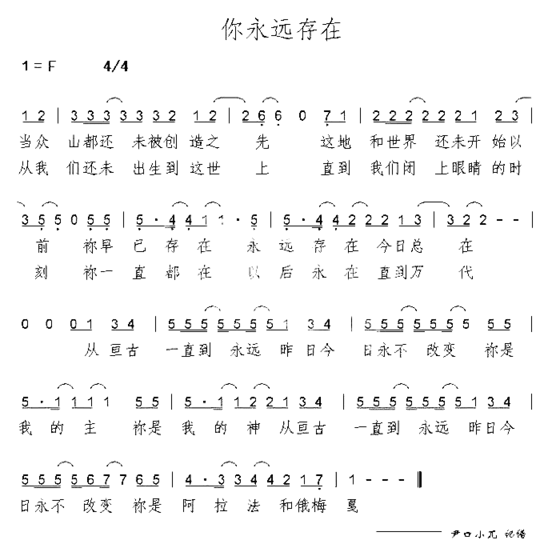 你永远存在
1=F 4/4
1 2 | 3 3 3 3 3 3 3 2 1 2 · | 2 6 6 0 7 1 | 2 2 2 2 2 2 1 2 2 3 |
当众 山都还 未被创 造之 先 这地 和世界 还未开 始以
从我 们还未 出生到 这世 上 直到 我们闭 上眼睛 的时
3 5 5 0 5 5 | 5 · 4 4 1 1 · 5 | 5 · 5 4 4 2 2 2 2 1 3 | 3 2 2 - - |
前 祢早 已 存在 永 远 存在 今日总 在
刻 祢一 直 都在 以 后 永在 直到万 代
0 0 0 1 3 4 | 5 5 5 5 5 5 5 1 3 4 | 5 5 5 5 5 5 5 5 5 |
从 亘古 一直到 永远 昨日今 日永不 改变 祢是
5 · 1 1 1 1 5 5 | 5 · 1 1 2 2 1 3 4 | 5 5 5 5 5 5 5 1 3 4 |
我 的 主 祢是 我 的 神 从亘古 一直到 永远 昨日今
5 5 5 5 6 7 7 6 5 | 4 · 3 3 4 4 2 1 7 | 1 - - - ‖
日永不 改变 祢是 阿 拉 法 和俄梅 戛